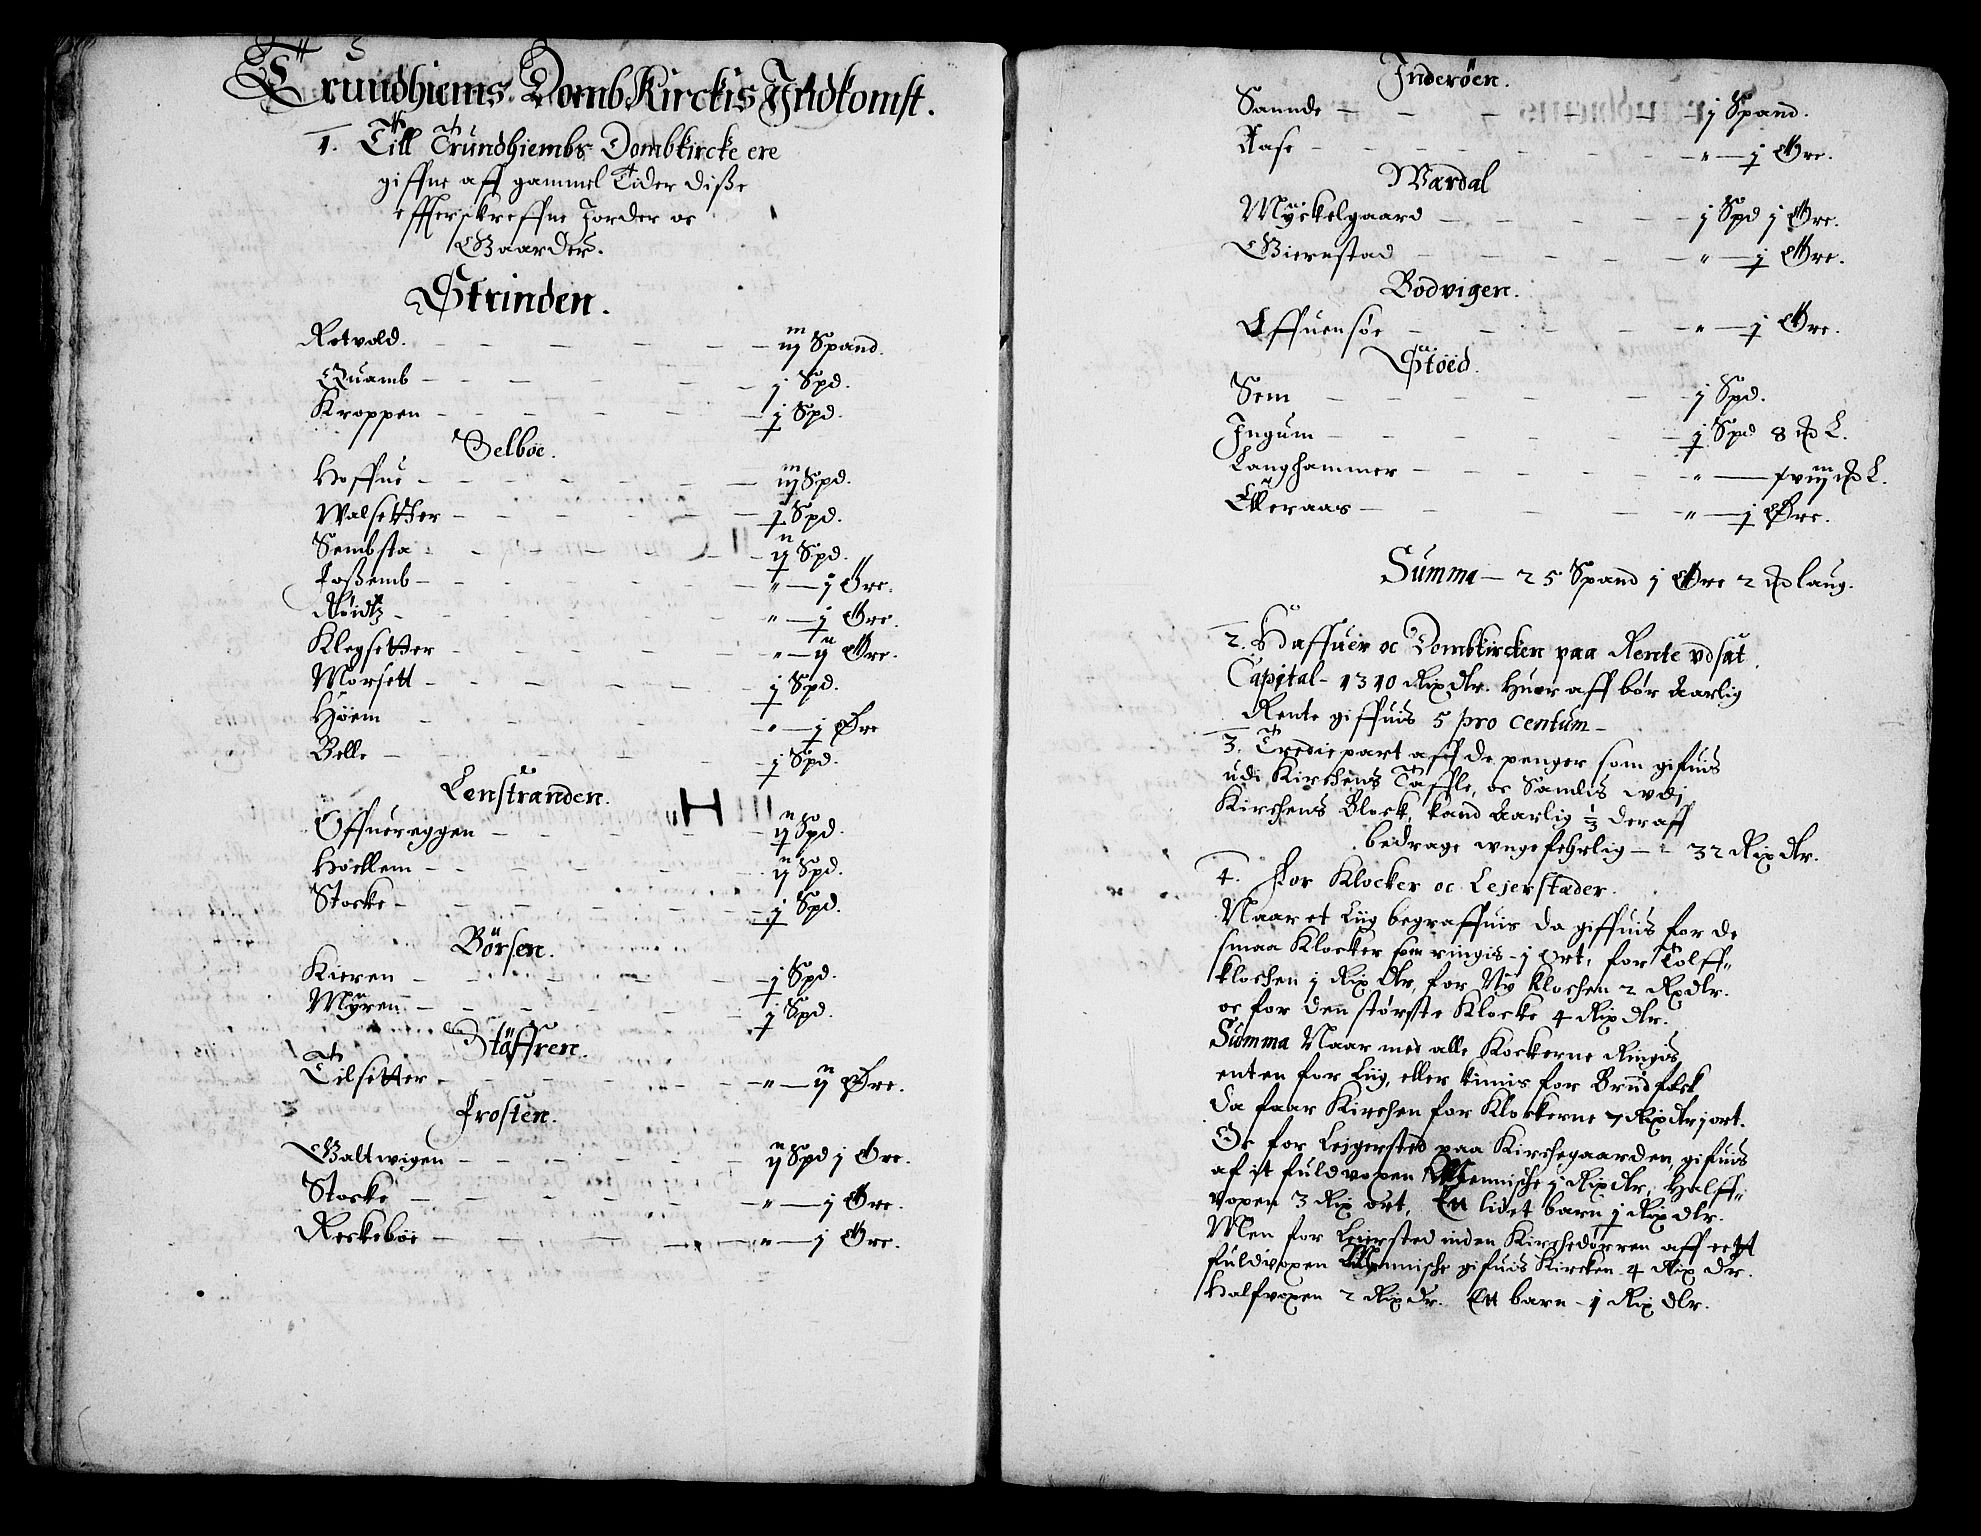 Trundhiems DombKirckis Indkomst.
1. Till Trundhiembs Dombkircke ere
giffne aff gammel Tider disse
effterskreffne Jorder oc
Gaarder.
Strinden.
Rotvold. iij Spand.
Quamb j Spd.
Kroppen j Spd.
Selboe.
Hoffue iij Spd.
Walsetther j Spd.
Sembsta ij Spd.
Fossemb " j Øre.
Røidtz " j Øre.
Klegsetter " ij Øre.
Morsett j Spd.
Høiem " j Øre
Belle j Spd.
Lenstranden.
Offuereggen ij Spd.
Hoellem ij Spd.
Stocke j Spd.
Börsen.
Kieren j Spd.
Myren j Spd.
Stöffren.
Tilsetter " ij Øre.
Frosten.
Galtwigen ij Spd j Øre.
Stocke " j Øre.
Reckeboe " j Øre.
Inderöen.
Sannde j Spand.
Aase " j Øre.
Wærdal
Myckelgaard j Spd j Øre.
Giernstad " j Øre.
Bodvigen.
Effuensøe " j Øre.
Stöed.
Sem j Spd.
Jngum j Spd 8 Md L.
Langhammer " xviij Md L.
Elleraas " j Øre.
Summa 25 Spand j Øre 2 Md laug.
2. Haffuer oc Dombkircken paa Rente vdsat
Capital 1310 Rixdlr. Huor aff bør Aarlig
Rente giffuis 5 pro centum
3. Tredie part aff de penger som gifuis
udi Kirckens Taffle, oc Samlis wdj
Kirckens Block, kand Aarlig 1/3 der aff
bedrage ungefehrlig 32 Rixdlr.
4. For Klocker oc Lejerstæder.
Naar et Liig begraffuis da giffuis for de
smaa Klocker som ringis j ort, for Tolff-
klocken j Rix dlr, for Ny Klocken 2 Rxdlr.
oc for den største Klocke 4 Rixdlr.
Summa Naar med alle Kockerne Ringis
enten for Liig, eller kimis for Brudfolck
da faar Kircken for Klockerne 7 Rixdlr j ort.
Oc for Leigersted paa Kirckegaarden, gifuis
af it fuldvoxen Mennische j Rixdlr, Halff-
voxen 3 Rix ort, Ett lidet barn j Rixdlr.
Men for Leiersted inden Kirckedörren aff eett
fuldvoxen Mennische gifuis Kircken 4 Rix dr.
Halfvoxen 2 Rixdr. Ett barn j Rix dlr.